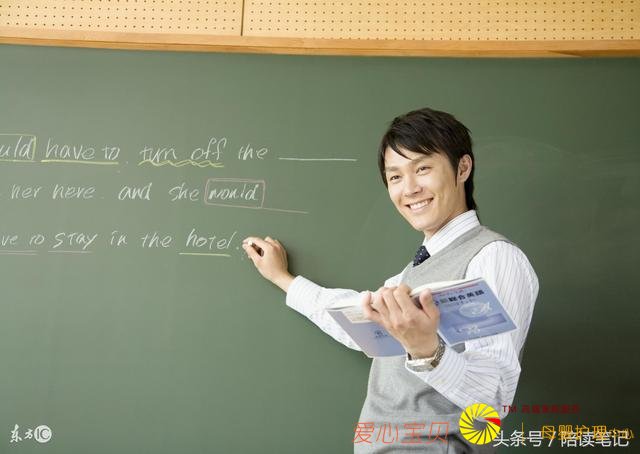 uld have to turn off the
her here. and she would
ve to stay in the hotel.
総合英語
东方IC
爱心宝贝
TM
母婴护理中心
头条号/陪读笔记